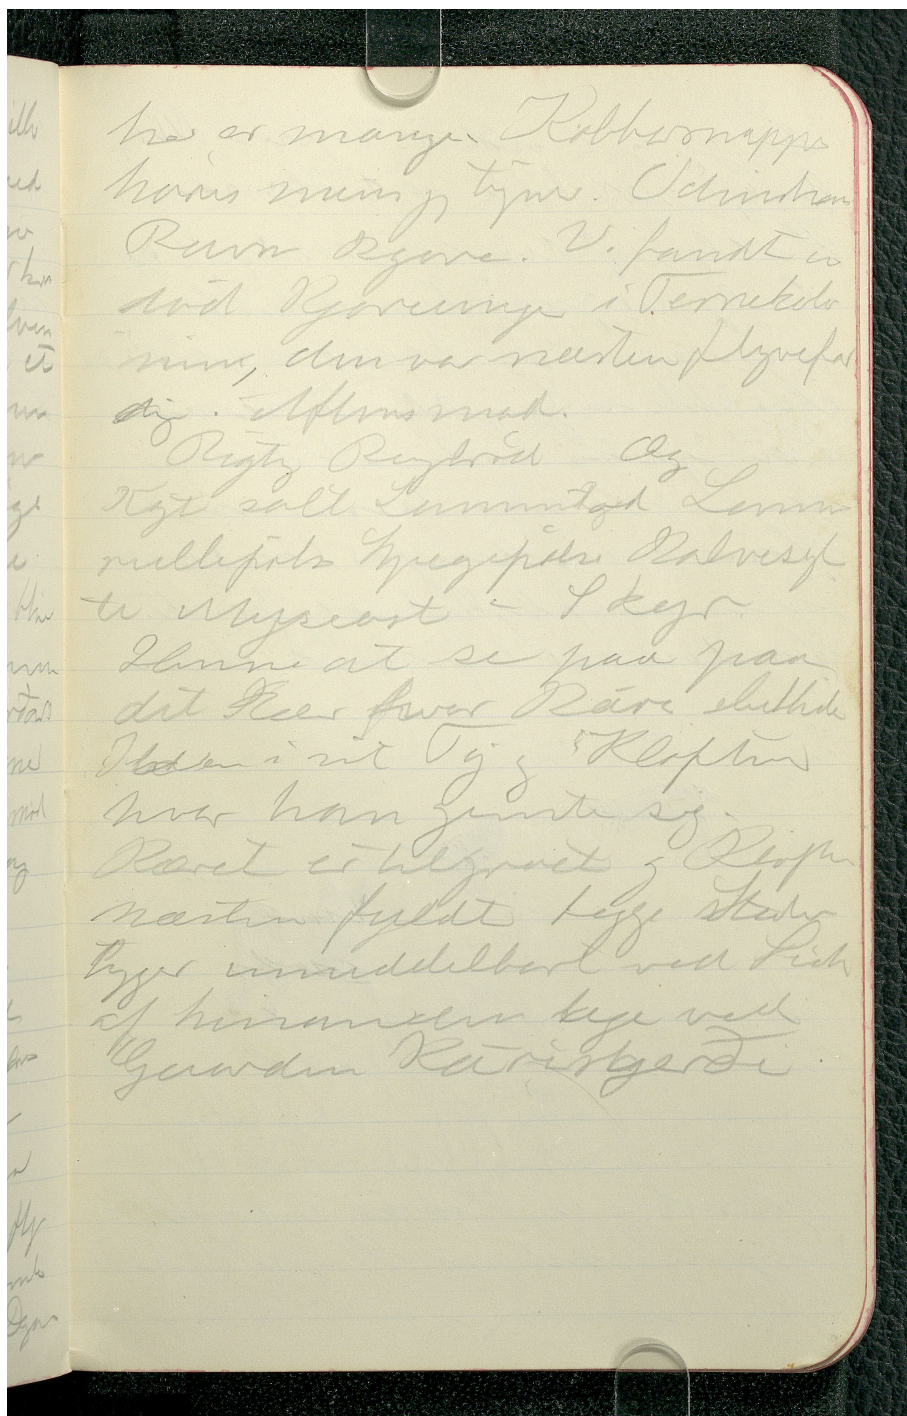 her er mange Kobbersneppe
høres men ej
Ravn Kjove. Vi fandt en
død Kjoveunge i Ternekolo
nien, den var næsten flyvefær
dig. Aftensmad.
Rigtig Rugbrød Æg
Kgt salt Lammekød Lamme
rullepølse Spegepølse Kalvesyl
te Myseost - Skyr
Henne at se paa paa
det Kær hvor Kári slukkede
Ilden i sit Tøj og Kløften
hvor han gemte sig.
Kæret er tilgroet og Kløften
næsten fyldt begge Steder
ligger umiddelbart ved Siden
af hinanden lige ved
Gaarden Káragerði.